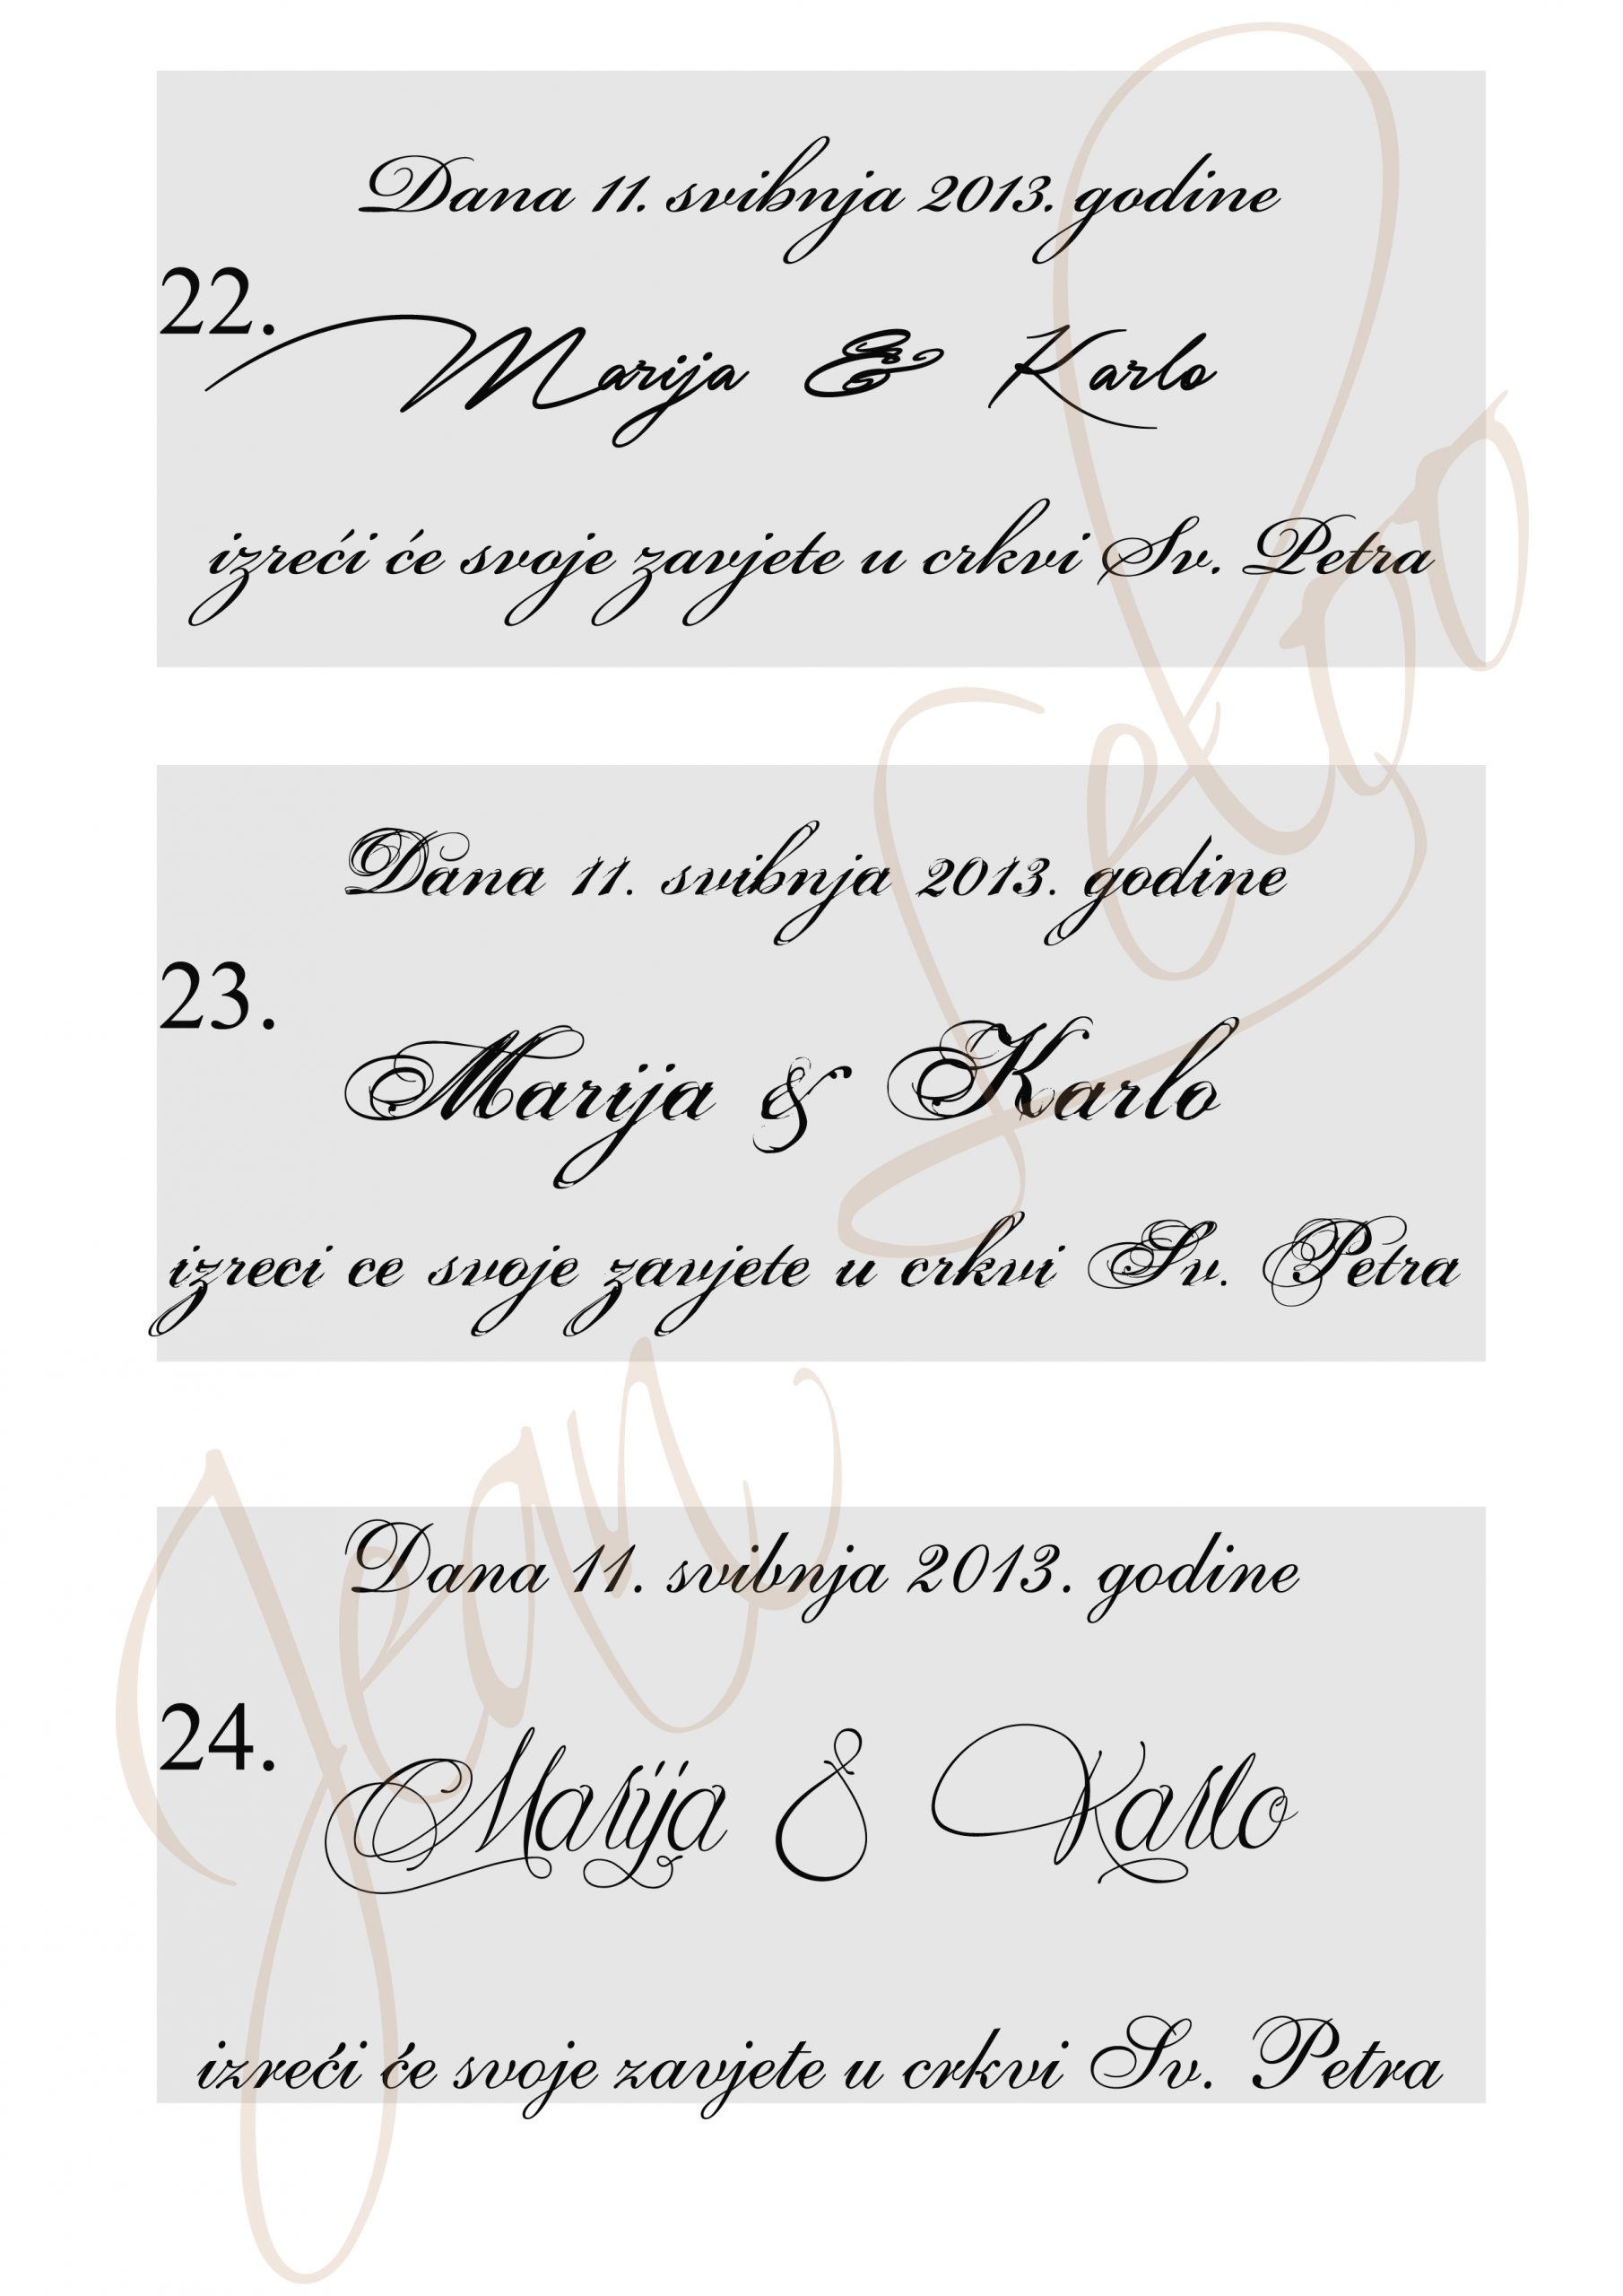 Dana 11. svibnja 2013. godine
22.
Marija & Karlo
izreći će svoje zavjete u crkvi Sv. Petra
Dana 11. svibnja 2013. godine
23.
Marija & Karlo
izreci ce svoje zavjete u crkvi Sv. Petra
Dana 11. svibnja 2013. godine
24.
Marija & Karlo
izreći će svoje zavjete u crkvi Sv. Petra
Jean